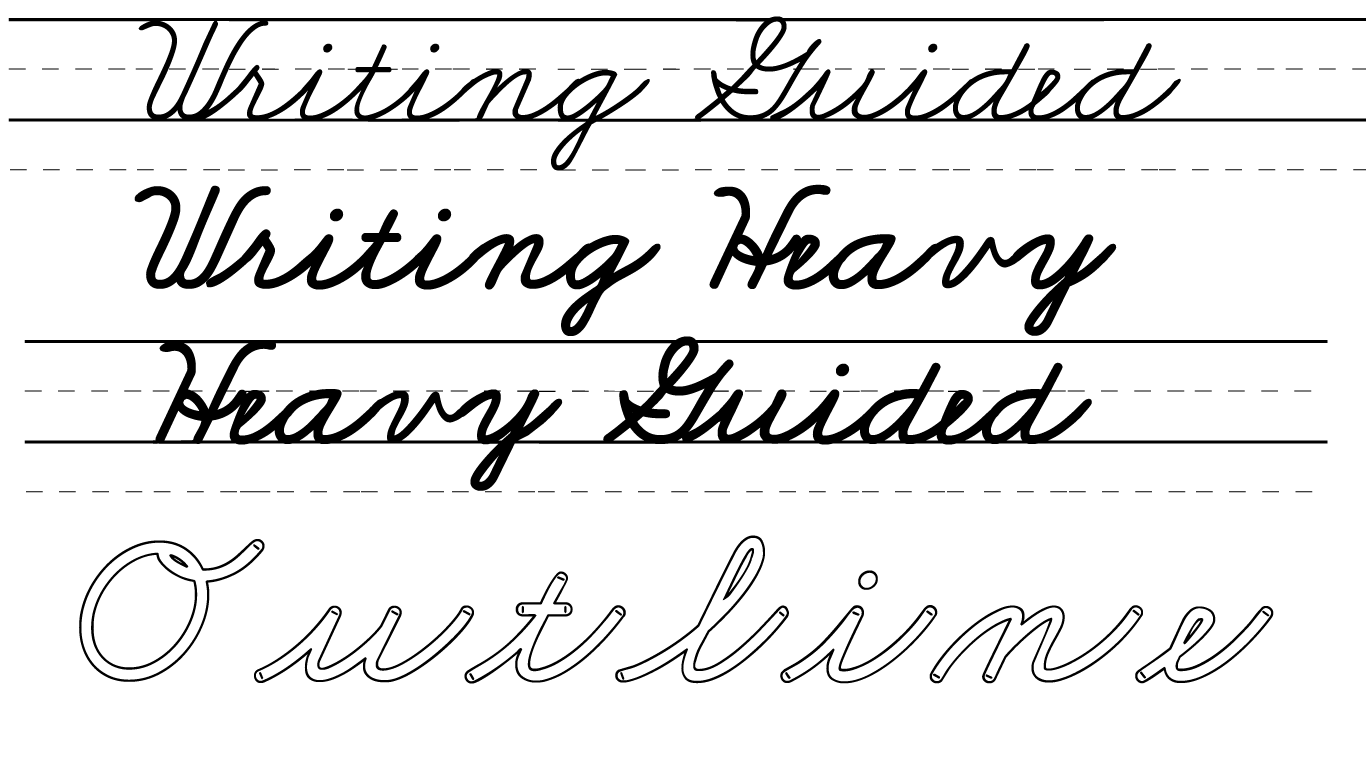 Writing Guided
Writing Heavy
Heavy Guided
Outline